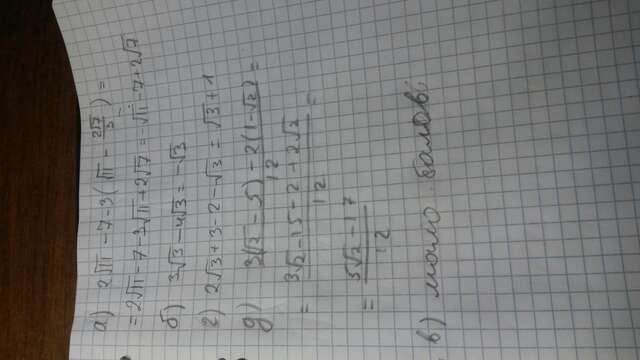 а) 2√11 - 7 - 3(√11 - 2√7/3) =
= 2√11 - 7 - 3√11 + 2√7 = √11 - 7 + 2√7
б) 3√3 - 4√3 = -√3
г) 2√3 + 3 - 2 - √3 = √3 + 1
д) 3(√2 - 5) - 2(1 - √2) / 12 =
= 3√2 - 15 - 2 + 2√2 / 12 =
= 5√2 - 17 / 12
в) мало балов: